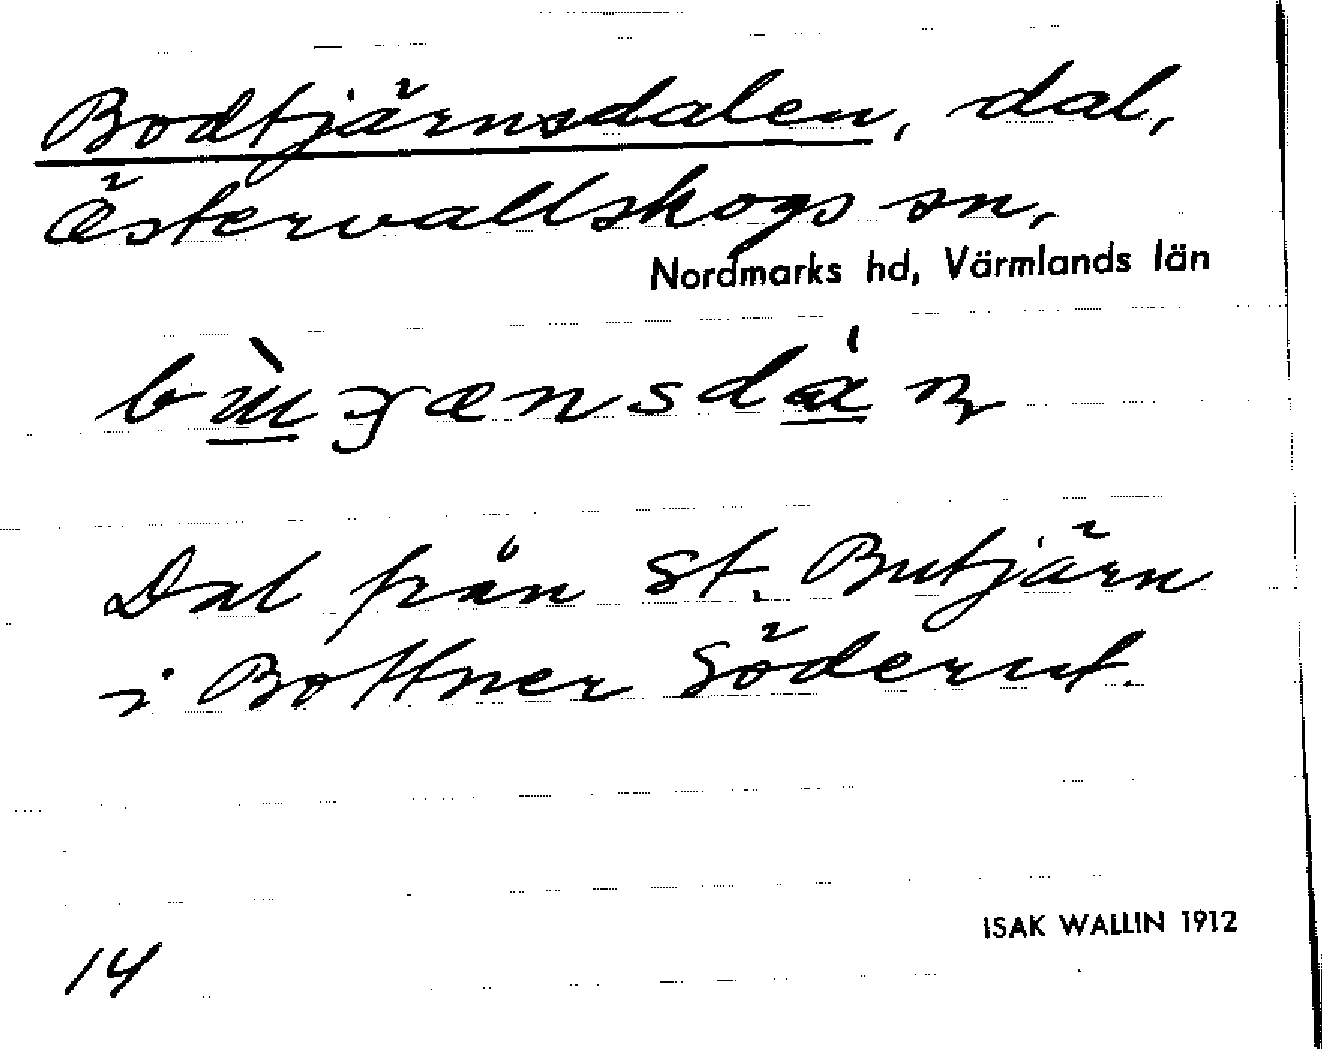 Bodtjärnsdalen, dal,
Östervallskogs sn,
Nordmarks hd, Värmlands län
Dal från St. Butjärn
i Bottner söderut.
ISAK WALLIN 1912
14